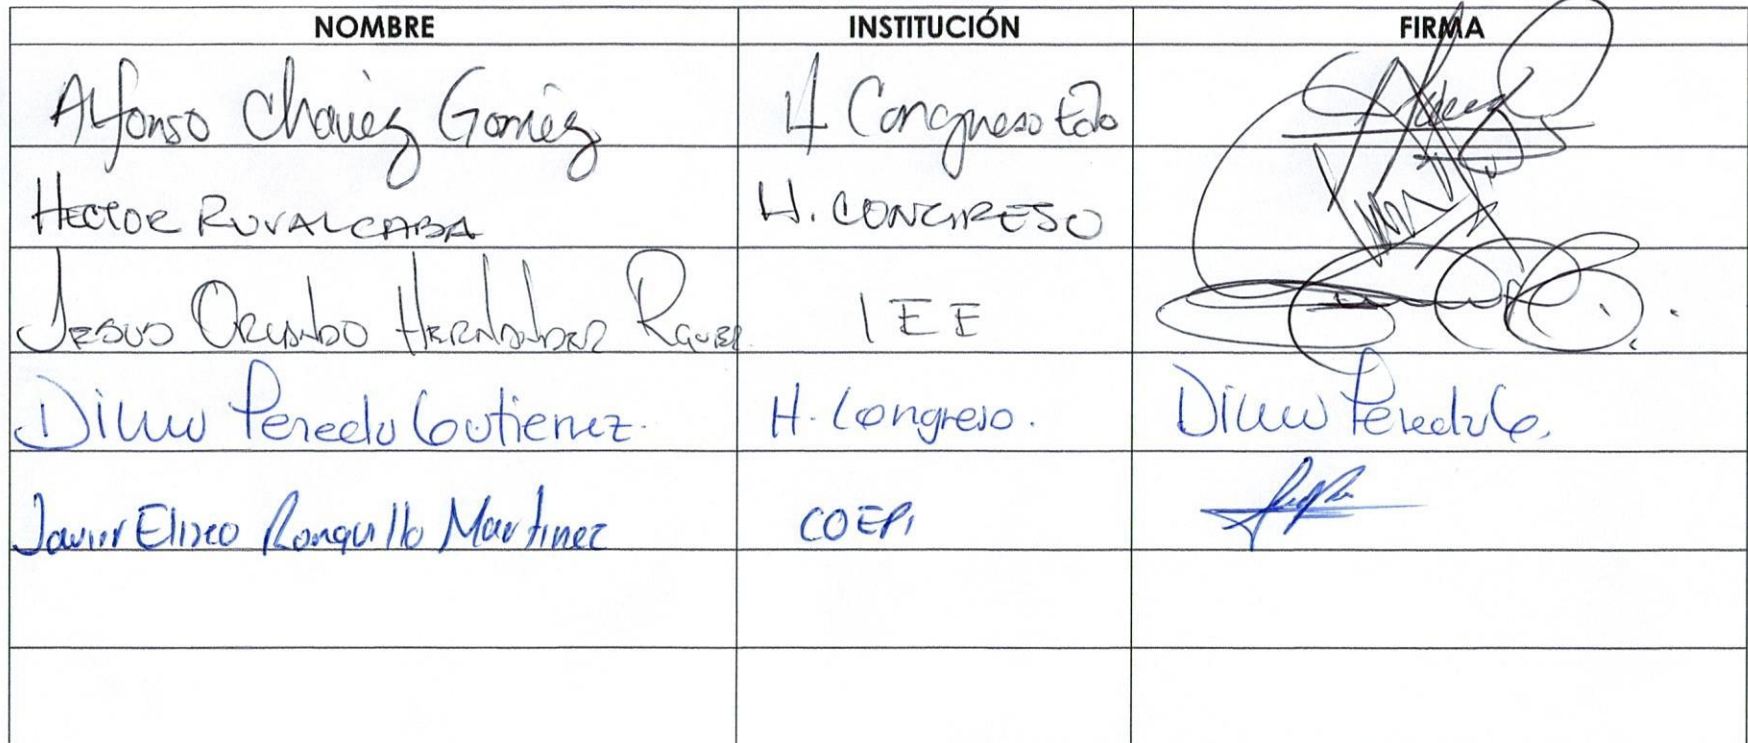 NOMBRE INSTITUCIÓN FIRMA
Alfonso Chavez Gomez H Congreso Edo
HECTOR RUVALCABA H. CONGRESO
JESUS ORLANDO HERNANDEZ IEE
Peredo Gutierrez. H. Congreso. Peredo G.
Javier Eliseo Ronquillo Martinez COEPI